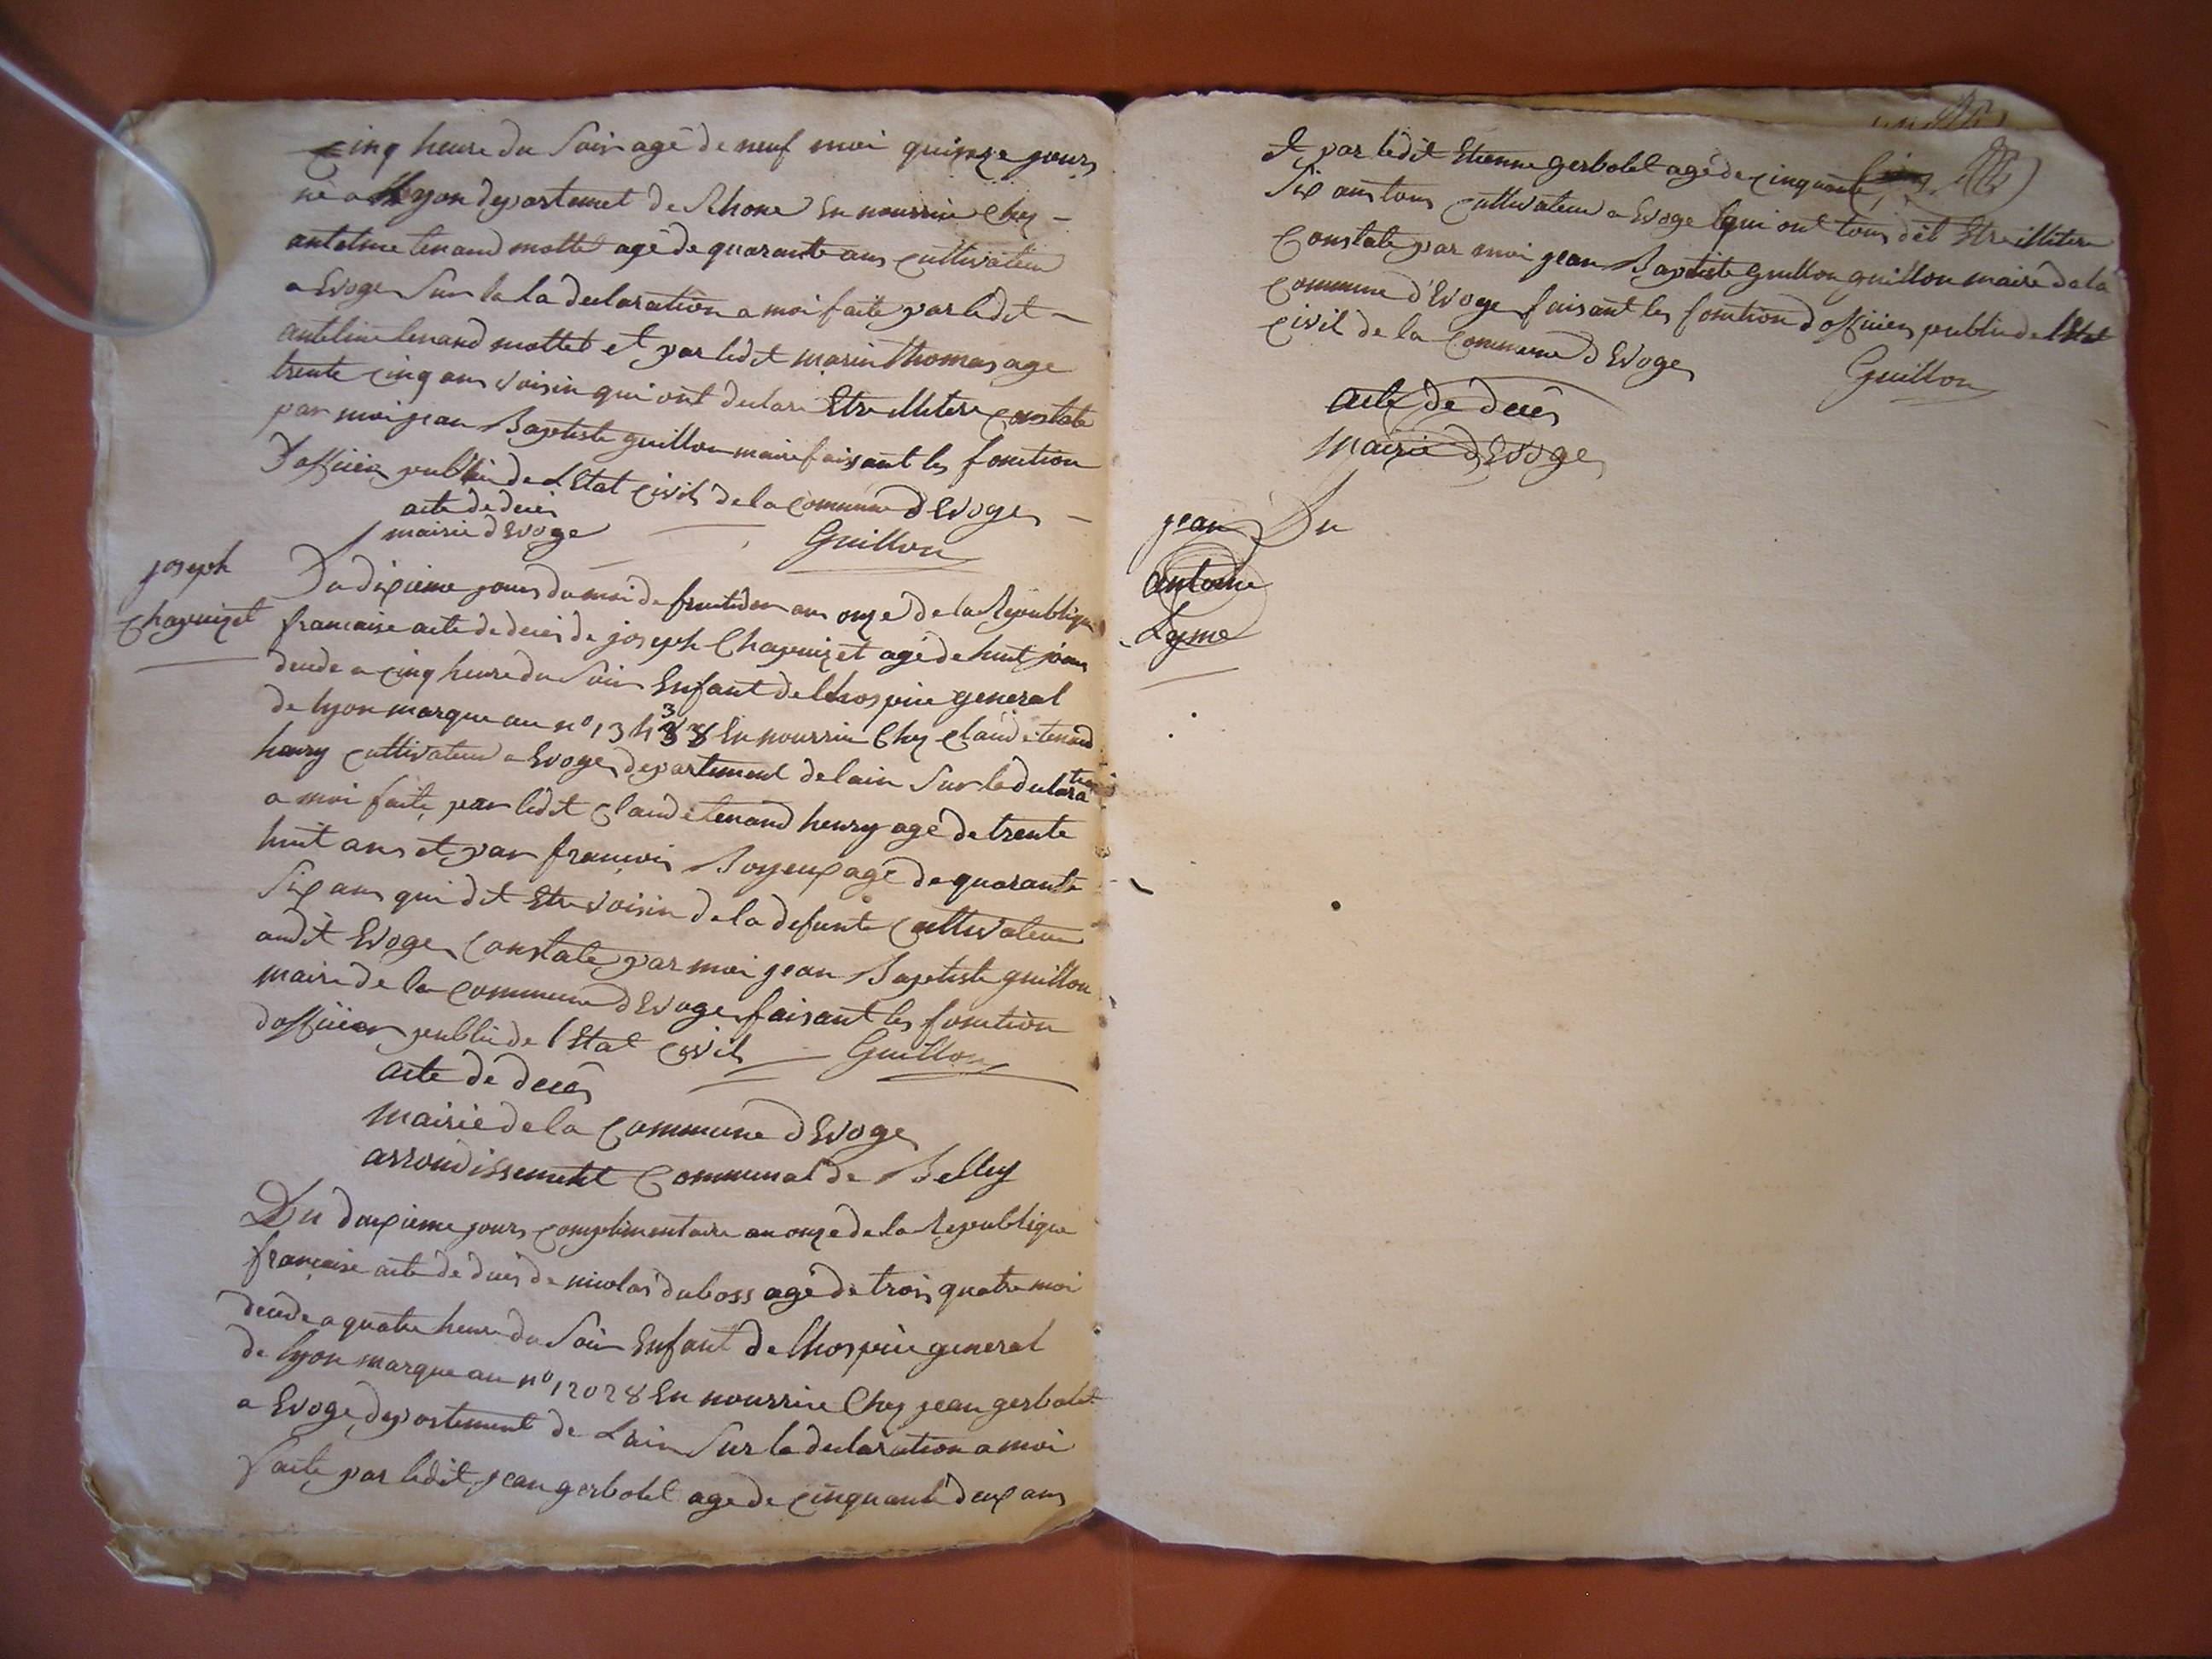 Cinq heure du Soir agé de neuf moi quinze jours
né a Lyon departemet de Rhone En nourrice Chez
antelme tenand mottet agé de quarante ans cultivateur
a Evoge Sur la la declaration a moi faite par ledit
antelme tenand mottet et par ledit marin thomas age
trente cinq ans voisin qui ont declare Etre illitere constate
par moi jean Baptiste guillon maire faisant les fonction
D'officier public de LEtat civil de la commune d'Evoge
acte de deces
mairie d'Evoge
Guillon
joseph
Chapuizet
Du dixieme jours du moi de fructidor an onze de la Republique
francaise acte de deces de joseph Chapuizet agé de huit jours
decede a cinq heure du Soir Enfant de lhospice general
de lyon marque au n° 13438 En nourrice Chez Claude tenand
henry cultivateur a Evoge departement de lain Sur la declaration
a moi faite par ledit Claude tenand henry agé de trente
huit ans et par francois Royeux agé de quarante
Six ans qui dit Etre voisin de la defunte Cultivateur
audit Evoge Constate par moi jean Baptiste guillon
maire de la commune d'Evoge faisant les fonction
d'officier public de lEtat civil
Guillon
acte de deces
Mairie de la Commune d'Evoge
arrondissement Communal de Belley
Du deuxieme jours complimentaire an onze de la Republique
francaise acte de deces de nicolas duboss agé de trois quatre moi
decede a quatre heure du Soir Enfant de lhospice general
de lyon marque au n° 12028 En nourrice Chez jean gerbolet
a Evoge departement de Lain Sur la declaration a moi
faite par ledit jean gerbolet age de cinquante deux ans
Et par ledit Etienne gerbolet agé de cinquante
Six ans tous cultivateur a Evoge qui ont tous dit Etre illitere
Constate par moi jean Baptiste guillon guillon maire de la
commune d'Evoge faisant les fonction d'officier public de lEtat
civil de la Commune d'Evoge
Guillon
acte de deces
Mairie d'Evoge
jean
Du
antoine
Lyme